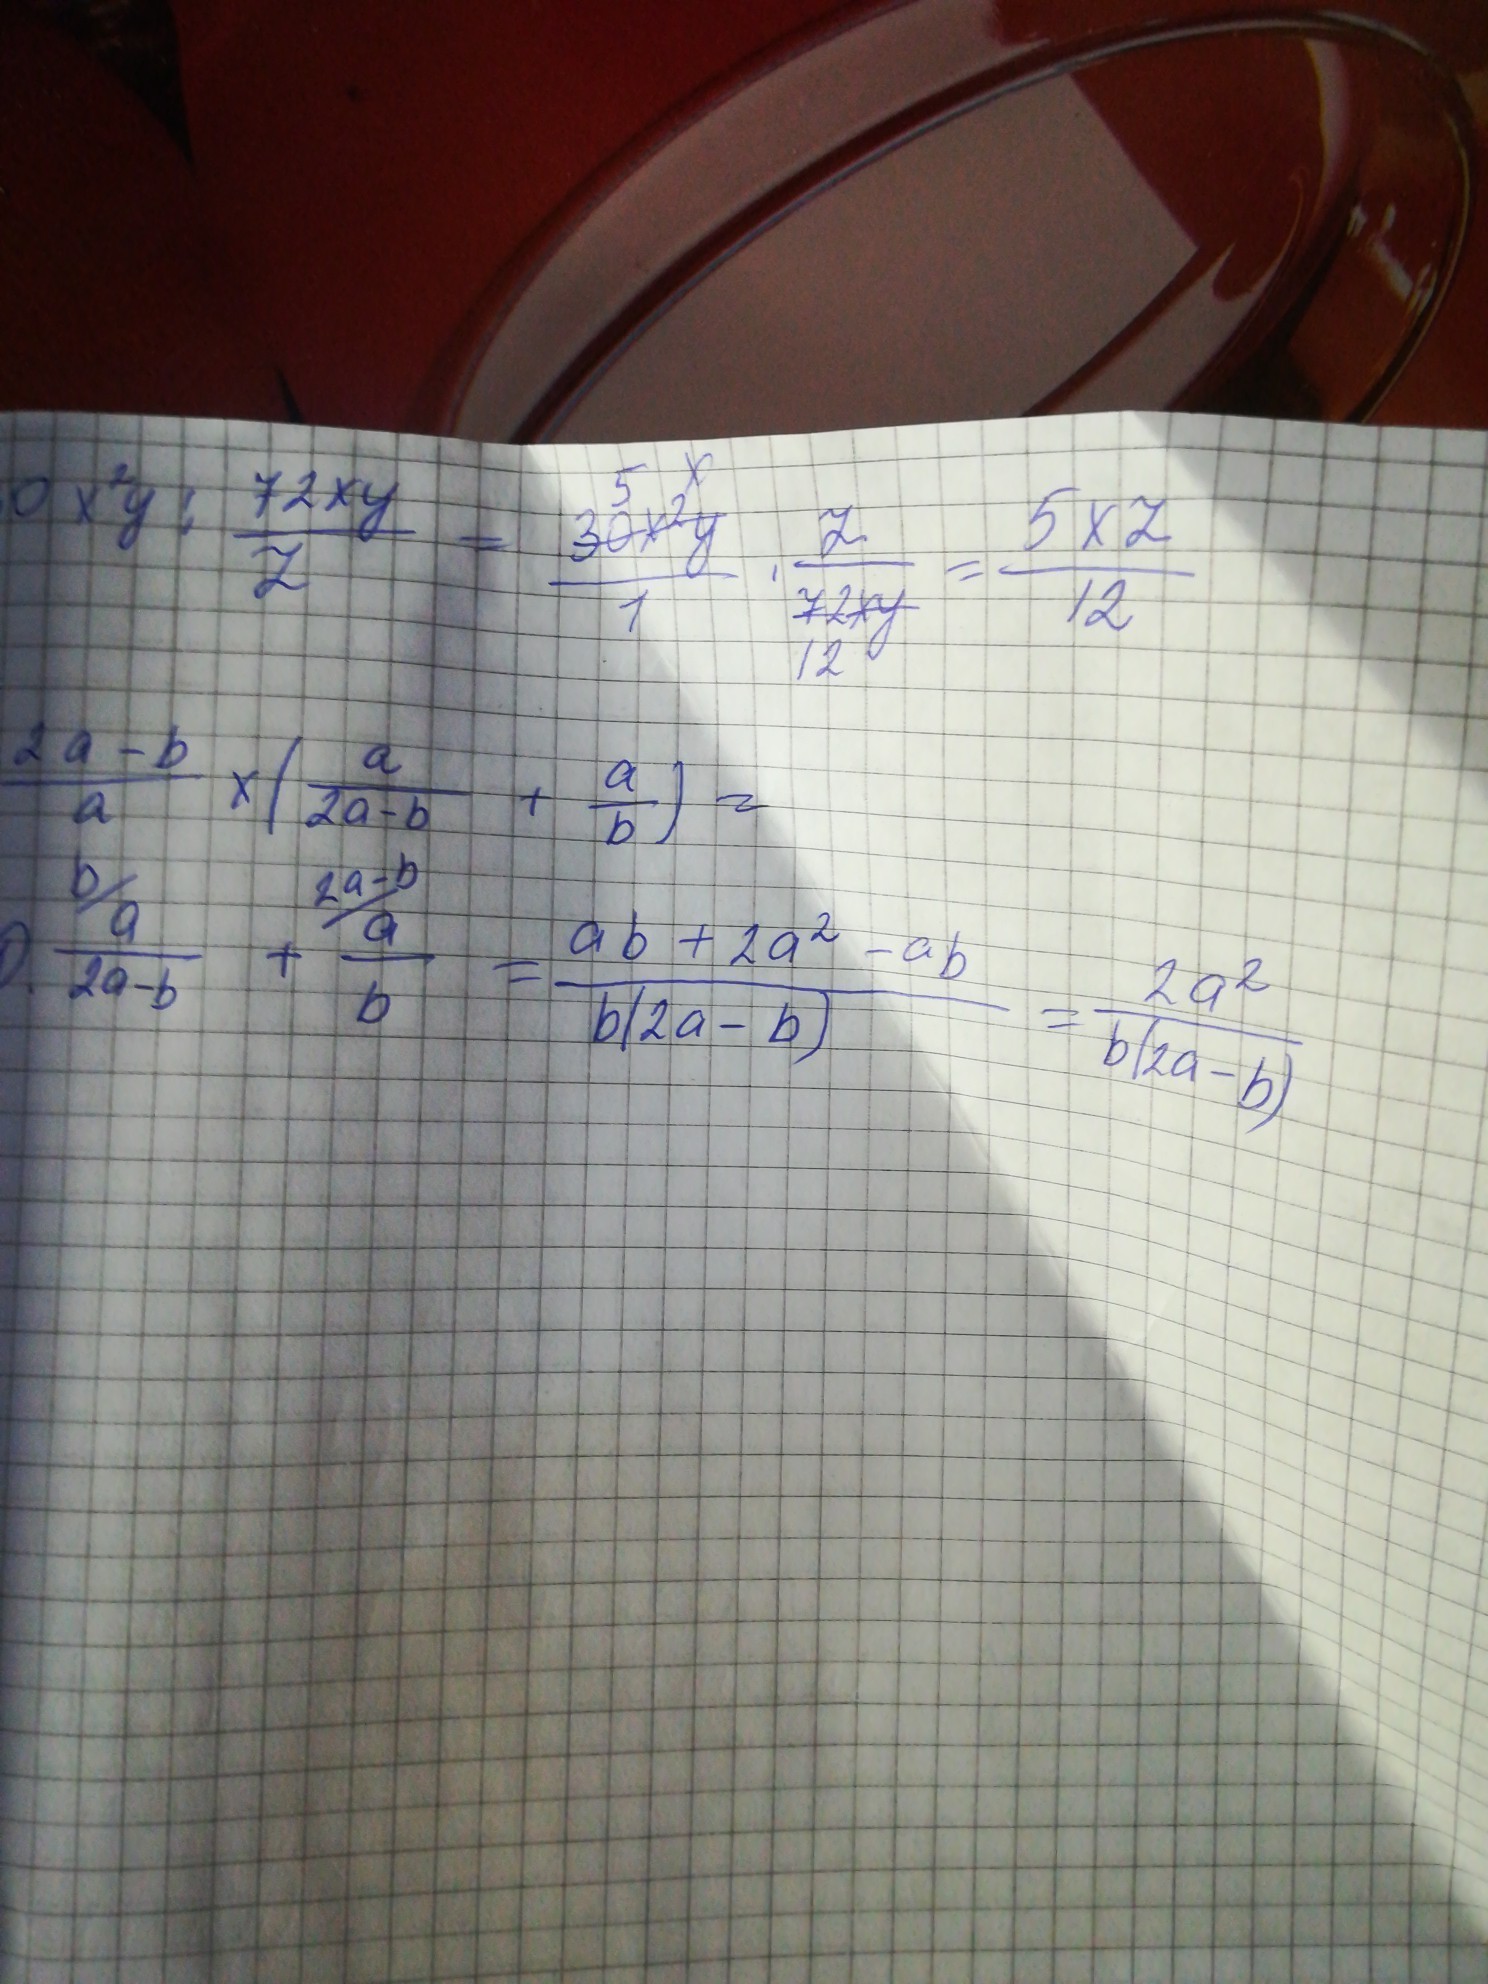 0x²y : 72xy/z = 30x²y/1 · z/72xy = 5xz/12
5 x
12
(2a-b)/a × (a/(2a-b) + a/b) =
b/ 2a-b/
a/(2a-b) + a/b = (ab + 2a² - ab)/(b(2a-b)) = 2a²/(b(2a-b))